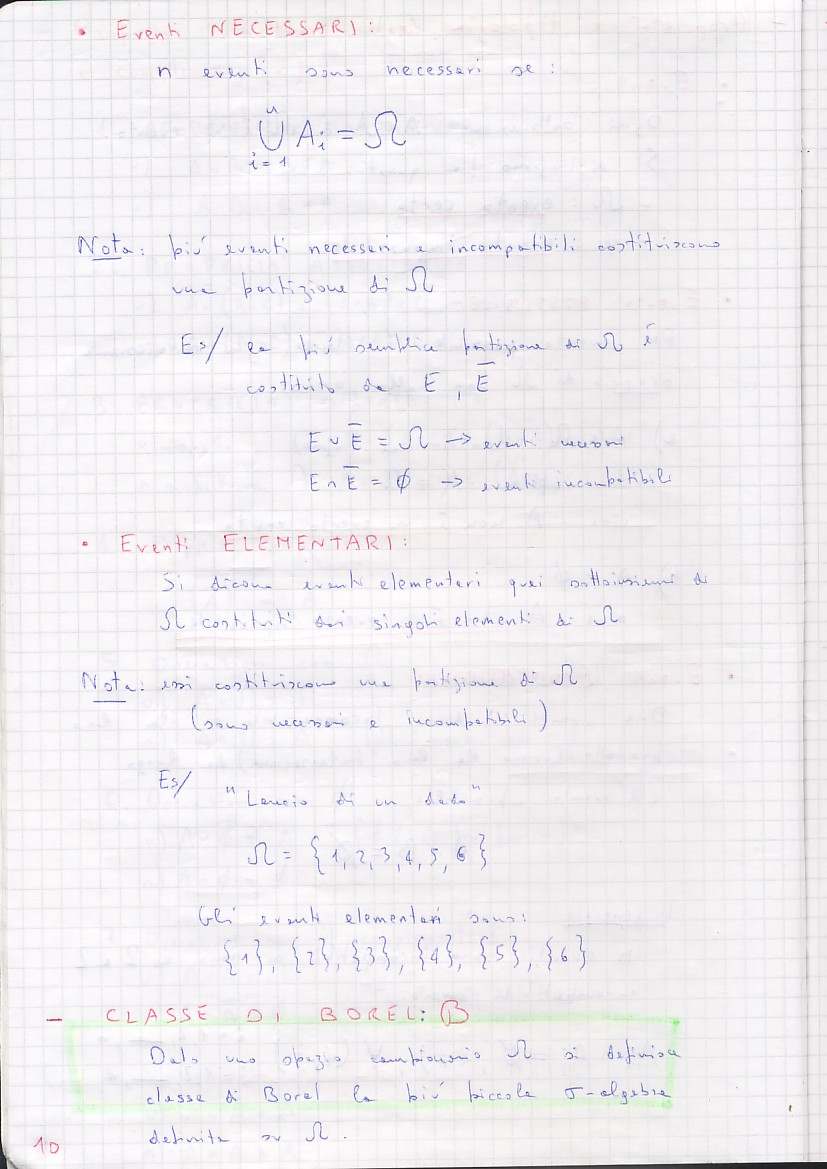 • Eventi NECESSARI:
n eventi sono necessari se:
n
⋃ Ai = Ω
i=1
Nota: più eventi necessari e incompatibili costituiscono
una partizione di Ω
Es/ la più semplice partizione di Ω è
costituita da E, E̅
E ∪ E̅ = Ω → eventi necessari
E ∩ E̅ = ∅ → eventi incompatibili
• Eventi ELEMENTARI:
Si dicono eventi elementari quei sottoinsiemi di
Ω costituiti dai singoli elementi di Ω
Nota: essi costituiscono una partizione di Ω
(sono necessari e incompatibili)
Es/ "Lancio di un dado"
Ω = {1, 2, 3, 4, 5, 6}
Gli eventi elementari sono:
{1}, {2}, {3}, {4}, {5}, {6}
– CLASSE DI BOREL: B
Dato uno spazio campionario Ω si definisce
classe di Borel la più piccola σ-algebra
definita su Ω.
10